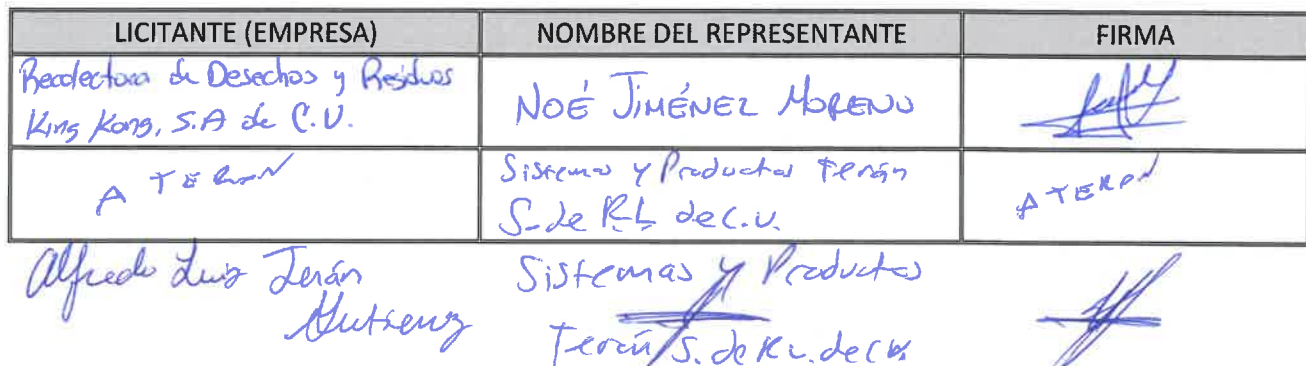 LICITANTE (EMPRESA) NOMBRE DEL REPRESENTANTE FIRMA
Recolectora de Desechos y Residuos
King Kong, S.A de C.V.
NOÉ JIMÉNEZ MORENO
A TERAN
Sistemas y Productos Terán
S. de R.L de C.V.
A TERAN
Alfredo Luis Terán
Gutierrez
Sistemas y Productos
Terán S. de R.L. de C.V.